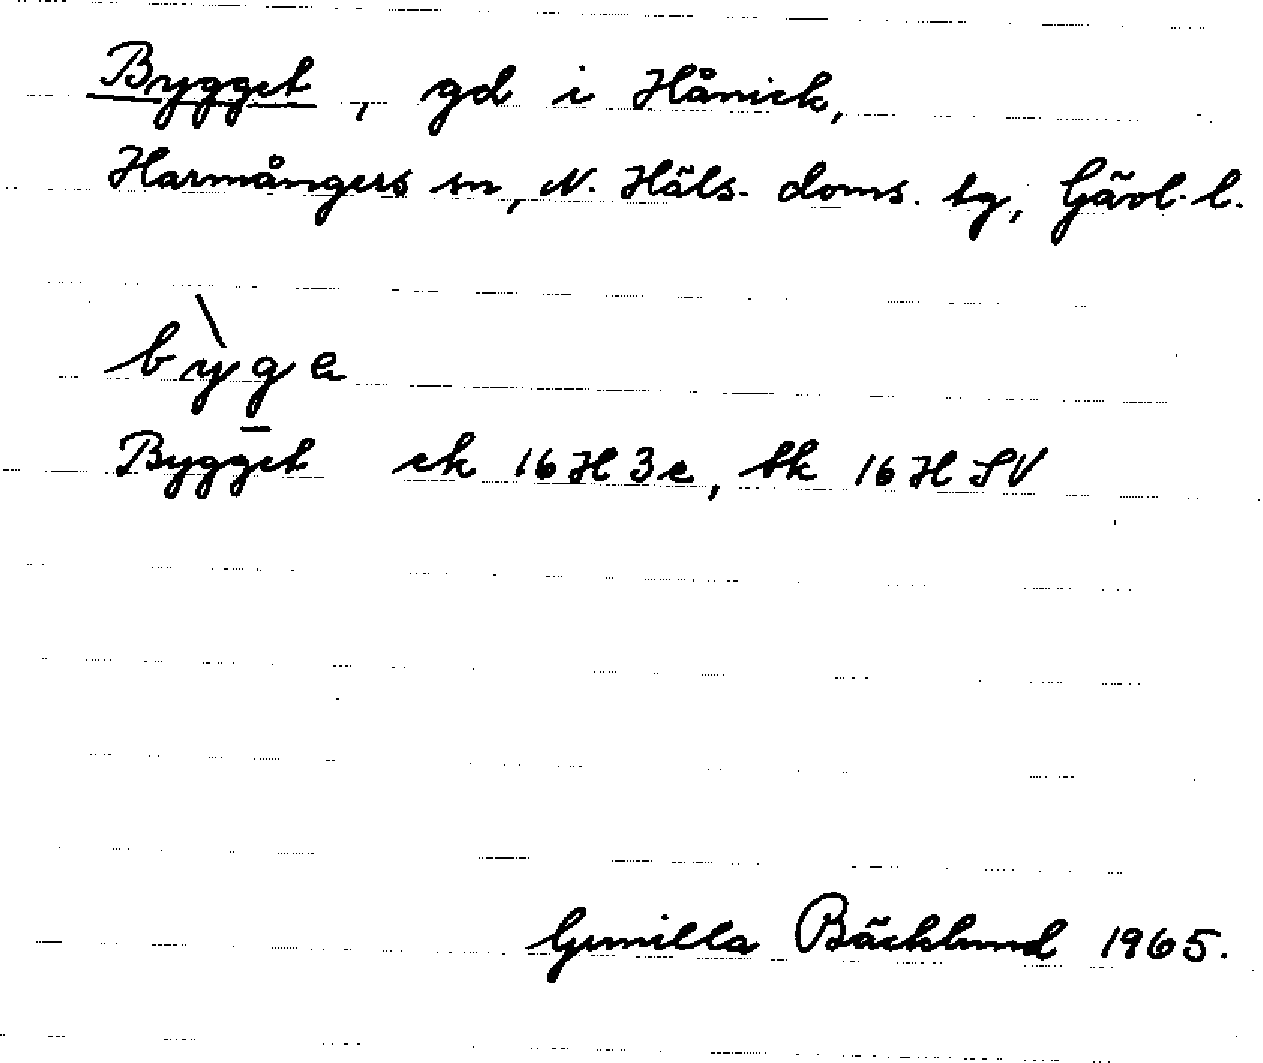 Bygget, gd i Hånick,
Harmångers sn, N. Häls. doms. tg, Gävl. l.
bỳge
Bygget ek 16H3e, tk 16H SV
Gunilla Bäcklund 1965.